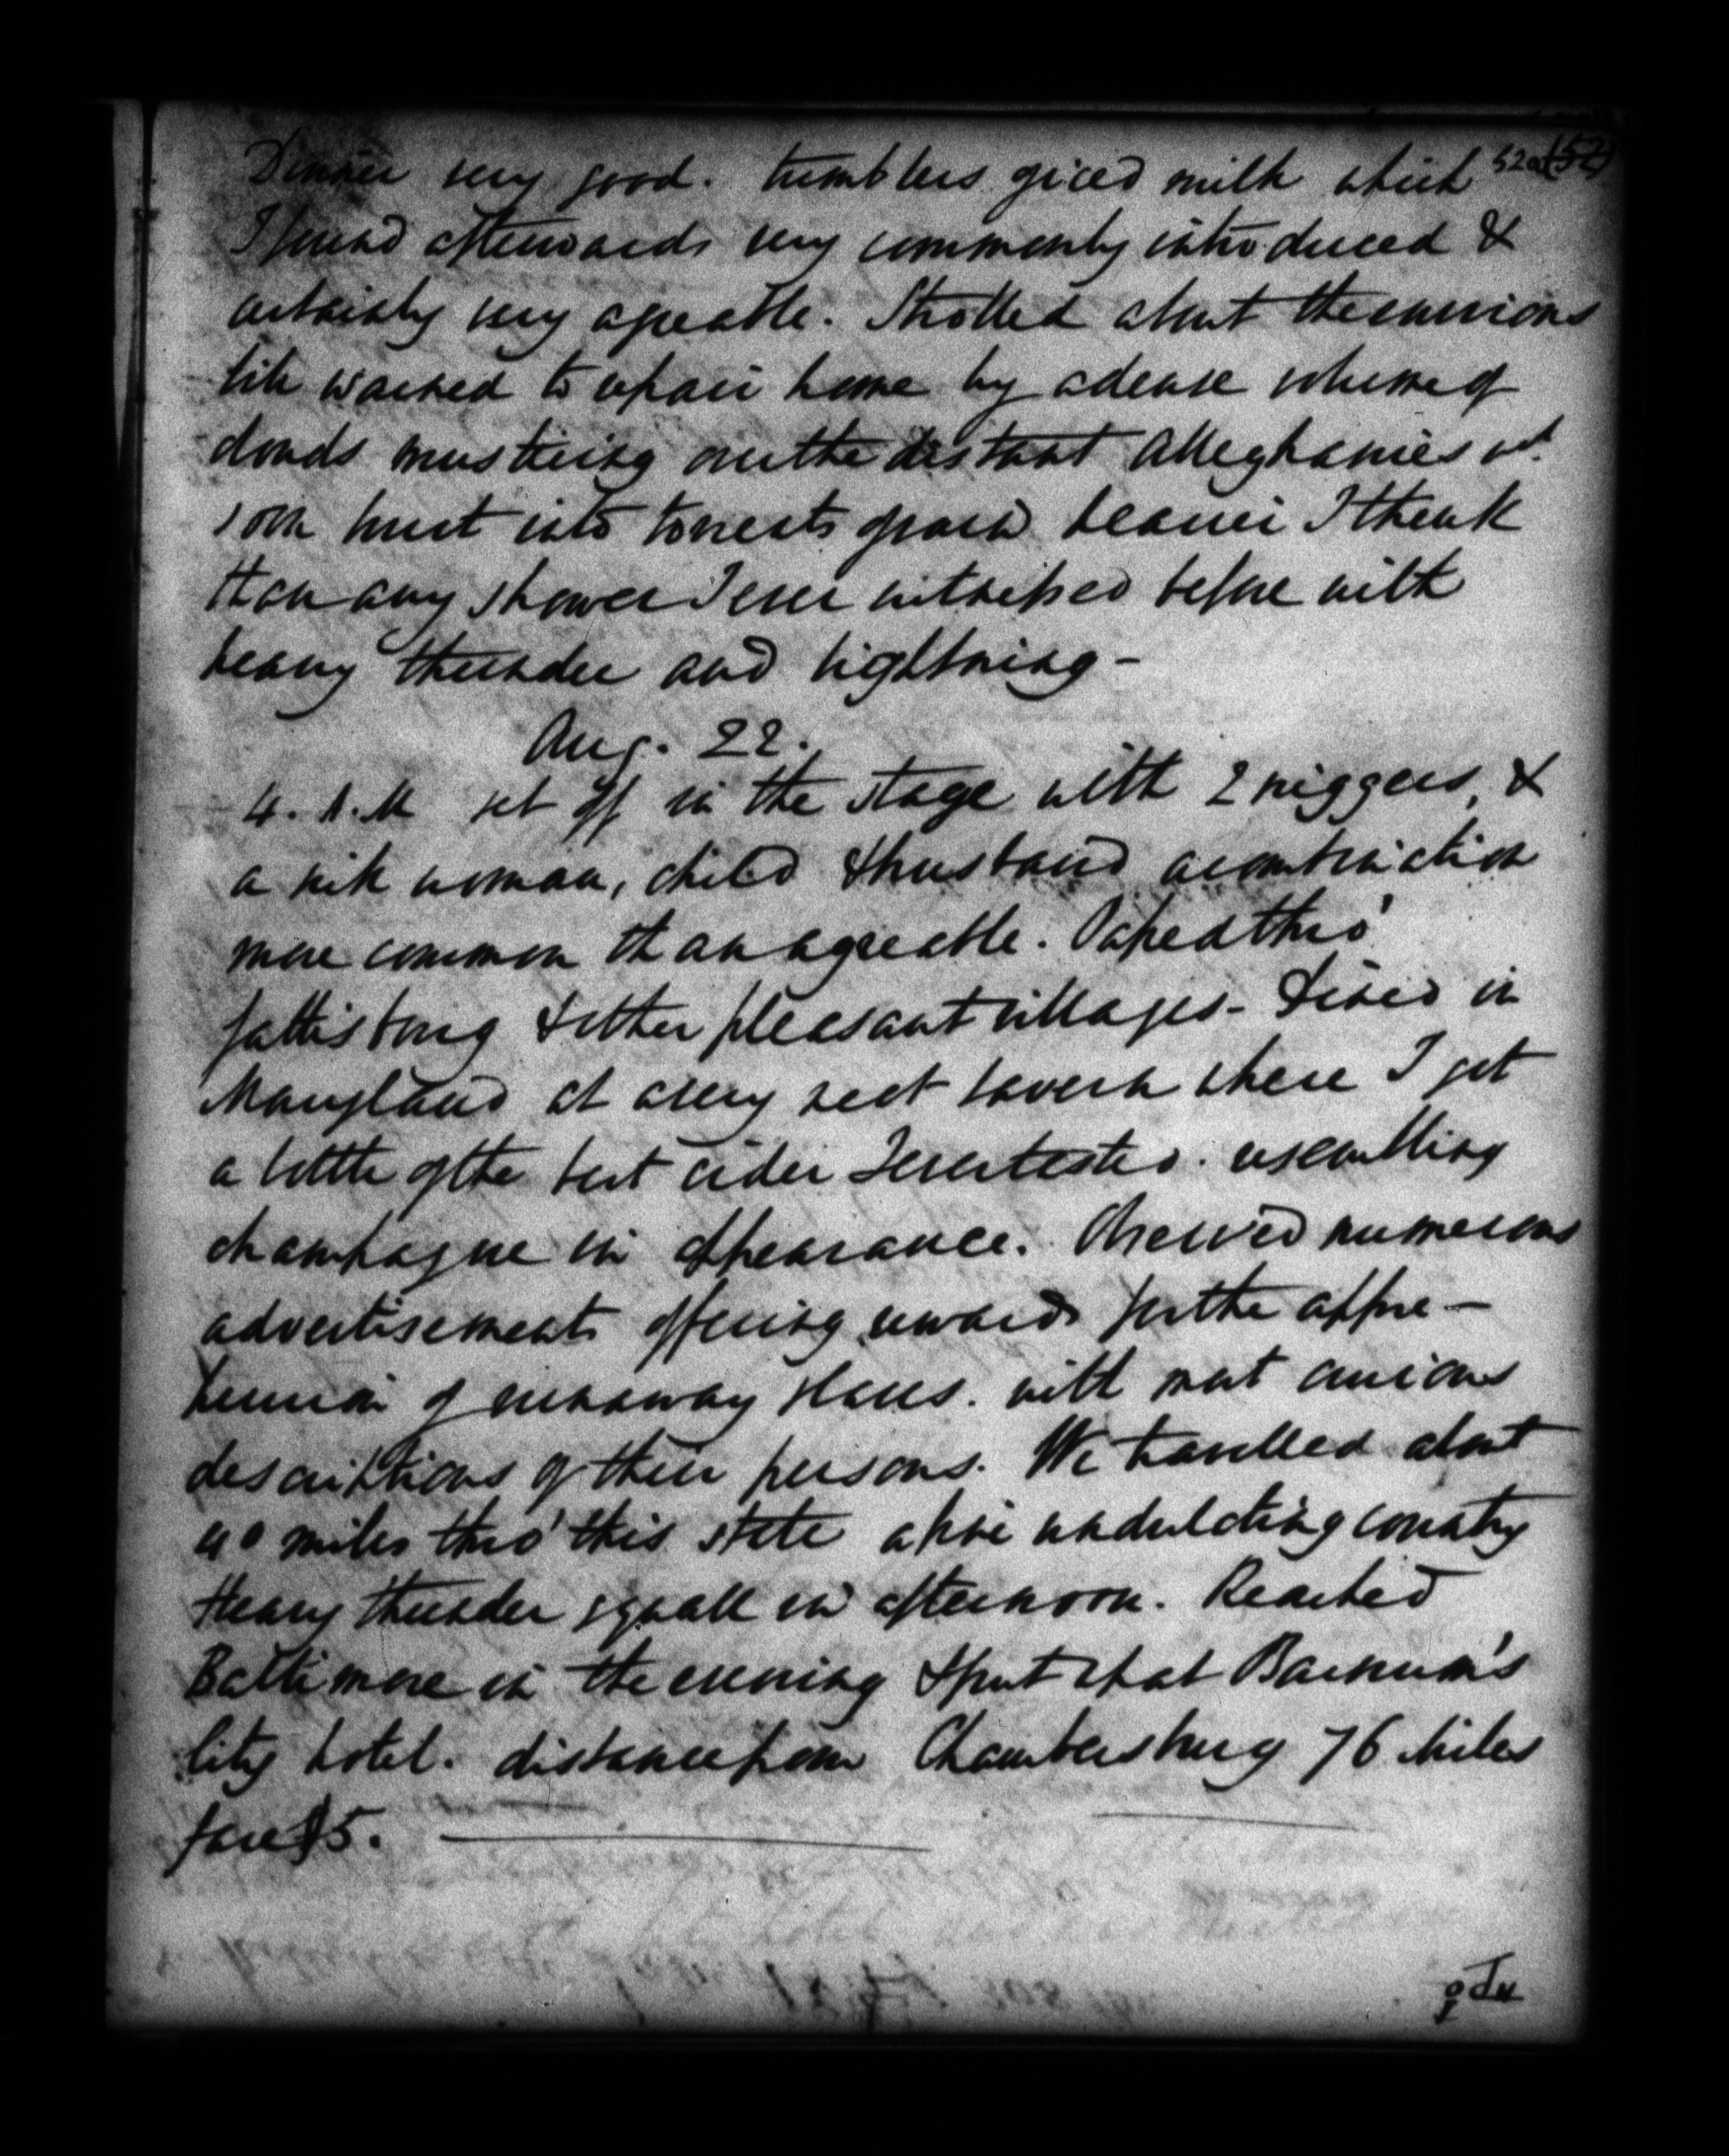 52a (52)
Dinner very good. tumblers of iced milk which
I found afterwards very commonly introduced &
certainly very agreeable. Strolled about the environs
till warned to repair home by a dense volume of
clouds mustering over the distant Alleghanies wh.
soon burst into torrents of rain heavier I think
than any shower I ever witnessed before with
heavy thunder and lightning -
Aug. 22.
4. A.M set off in the stage with 2 niggers, &
a sick woman, child & husband a combination
more common than agreeable. Passed thro'
Gattisburg & other pleasant villages - & dined in
Maryland at a very neat tavern where I got
a bottle of the best cider I ever tasted. resembling
champagne in appearance. Observed numerous
advertisements offering rewards for the appre-
hension of runaway slaves. with most curious
descriptions of their persons. We travelled about
40 miles thro' this state a fine undulating country
Heavy thunder squall in afternoon. Reached
Baltimore in the evening & put up at Barnum's
City hotel. distance from Chambersburg 76 Miles
fare $5.